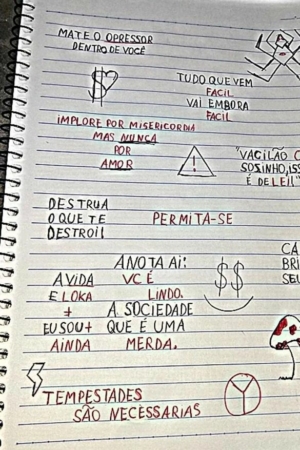 MATE O OPRESSOR
DENTRO DE VOCÊ
TUDO QUE VEM
FACIL
VAI EMBORA
FACIL
IMPLORE POR MISERICORDIA
MAS NUNCA
POR
AMOR
"VACILÃO
SOZINHO,
É DE LEI!"
DESTRUA
O QUE TE
DESTROI!
PERMITA-SE
ANOTA AI:
A VIDA
E LOKA
+
EU SOU +
AINDA
VC É
LINDO.
A SOCIEDADE
QUE É UMA
MERDA.
$$
TEMPESTADES
SÃO NECESSARIAS